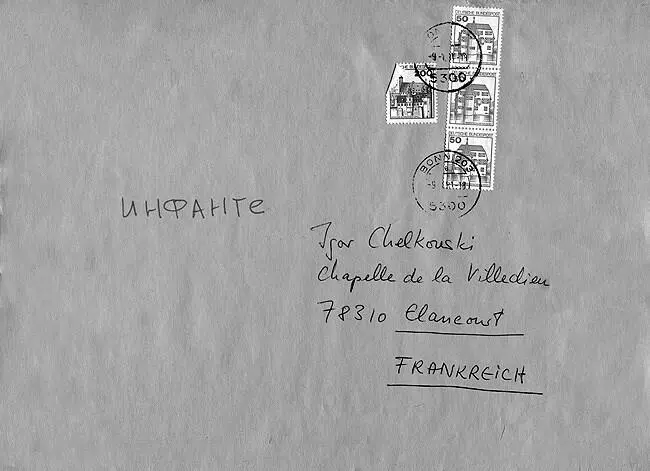 50
DEUTSCHE BUNDESPOST
200
50
BONN 203
5300
5300
ИНФАНТЕ
Igor Chelkowski
Chapelle de la Villedieu
78310 Elancourt
FRANKREICH